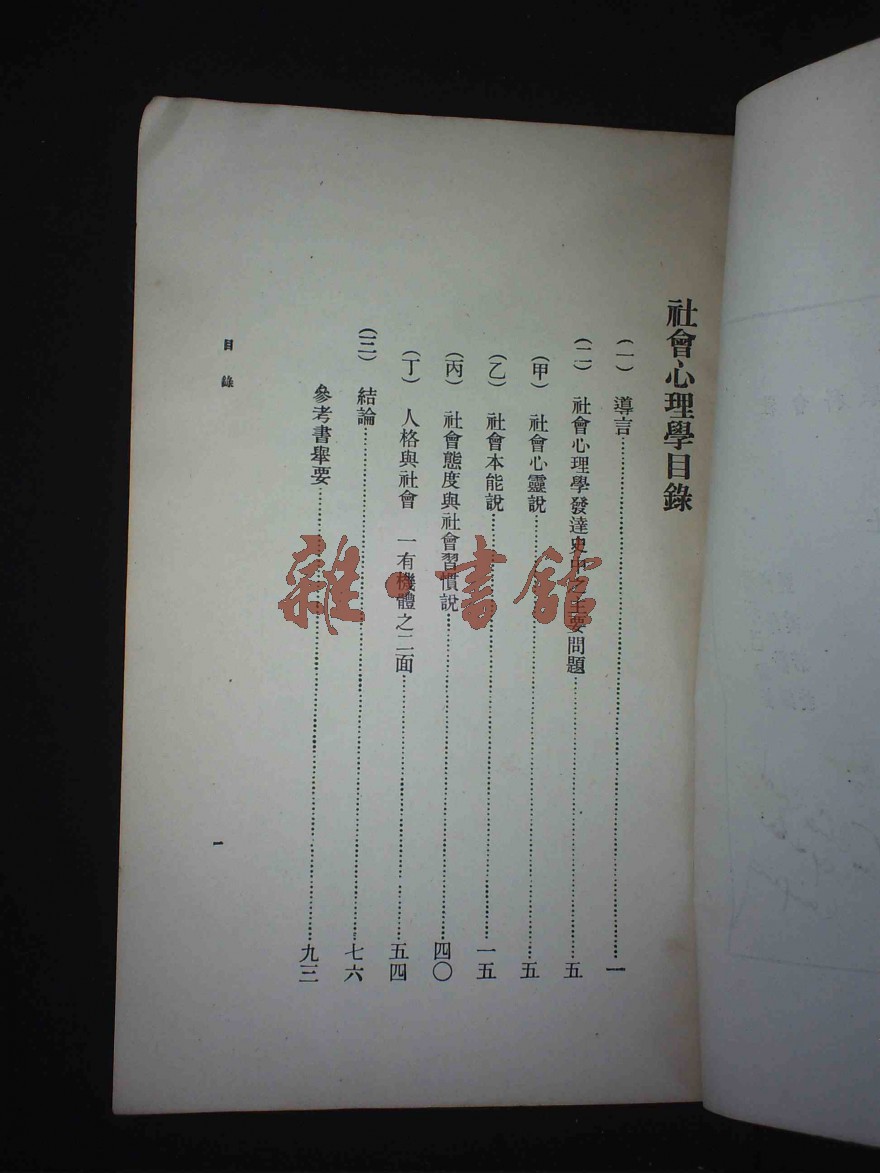 社會心理學目錄
（一） 導言……一
（二） 社會心理學發達史中之主要問題……五
（甲） 社會心靈說……五
（乙） 社會本能說……一五
（丙） 社會態度與社會習慣說……四〇
（丁） 人格與社會 一有機體之二面……五四
（三） 結論……七六
參考書舉要……九三
目錄
一
雜·書館